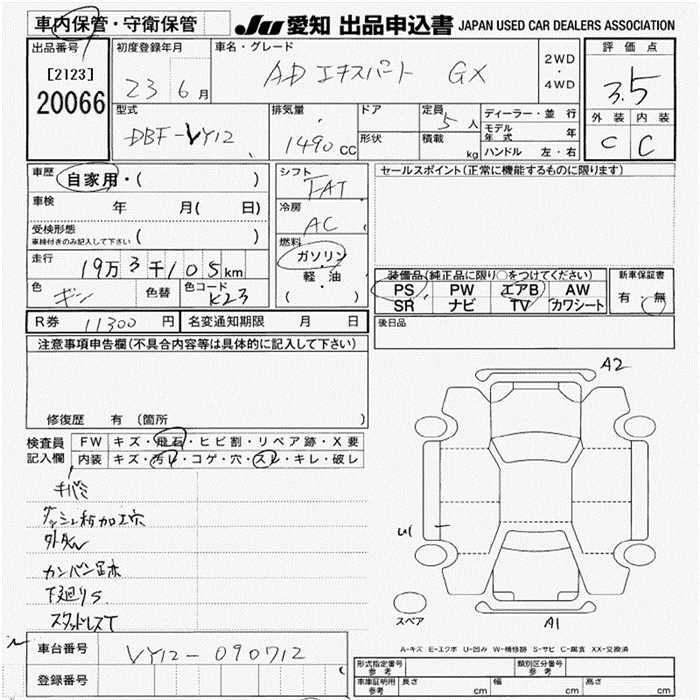 車内保管・守衛保管 JU 愛知 出品申込書 JAPAN USED CAR DEALERS ASSOCIATION
出品番号 初度登録年月 車名・グレード 評価点
[2123] 23 6月 ADエキスパート GX 2WD・4WD 3.5
20066 外装 内装
型式 排気量 ドア 定員 5人 ディーラー・並行
DBF-VY12 1490cc 形状 積載 kg モデル年式 年 C C
ハンドル 左・右
車歴 自家用・( ) シフト FAT セールスポイント(正常に機能するものに限ります)
車検 年 月( 日) 冷房 AC
受検形態 車検付きのみ記入して下さい ( ) 燃料
走行 19万3千105km ガソリン 装備品(純正品に限り○をつけてください) 新車保証書
色 ギン 色替 色コード K23 軽・油 PS PW エアB AW 有・無
( ) SR ナビ TV カワシート
R券 11300円 名変通知期限 月 日 後日品
注意事項申告欄(不具合内容等は具体的に記入して下さい)
A2
修復歴 有 (箇所 )
検査員記入欄 FW キズ・飛石・ヒビ割・リペア跡・X要
内装 キズ・汚レ・コゲ・穴・スレ・キレ・破レ
キバミ
ダッシュ板加工穴
U1
カンバン跡
下廻りS
スタッドレスT
スペア
A1
A-キズ E-エクボ U-凹み W-補修跡 S-サビ C-腐食 XX-交換済
車台番号 VY12-090712
登録番号 形式指定番号 参考 類別区分番号 参考
車庫証明用 参考 長さ cm 幅 cm 高さ cm